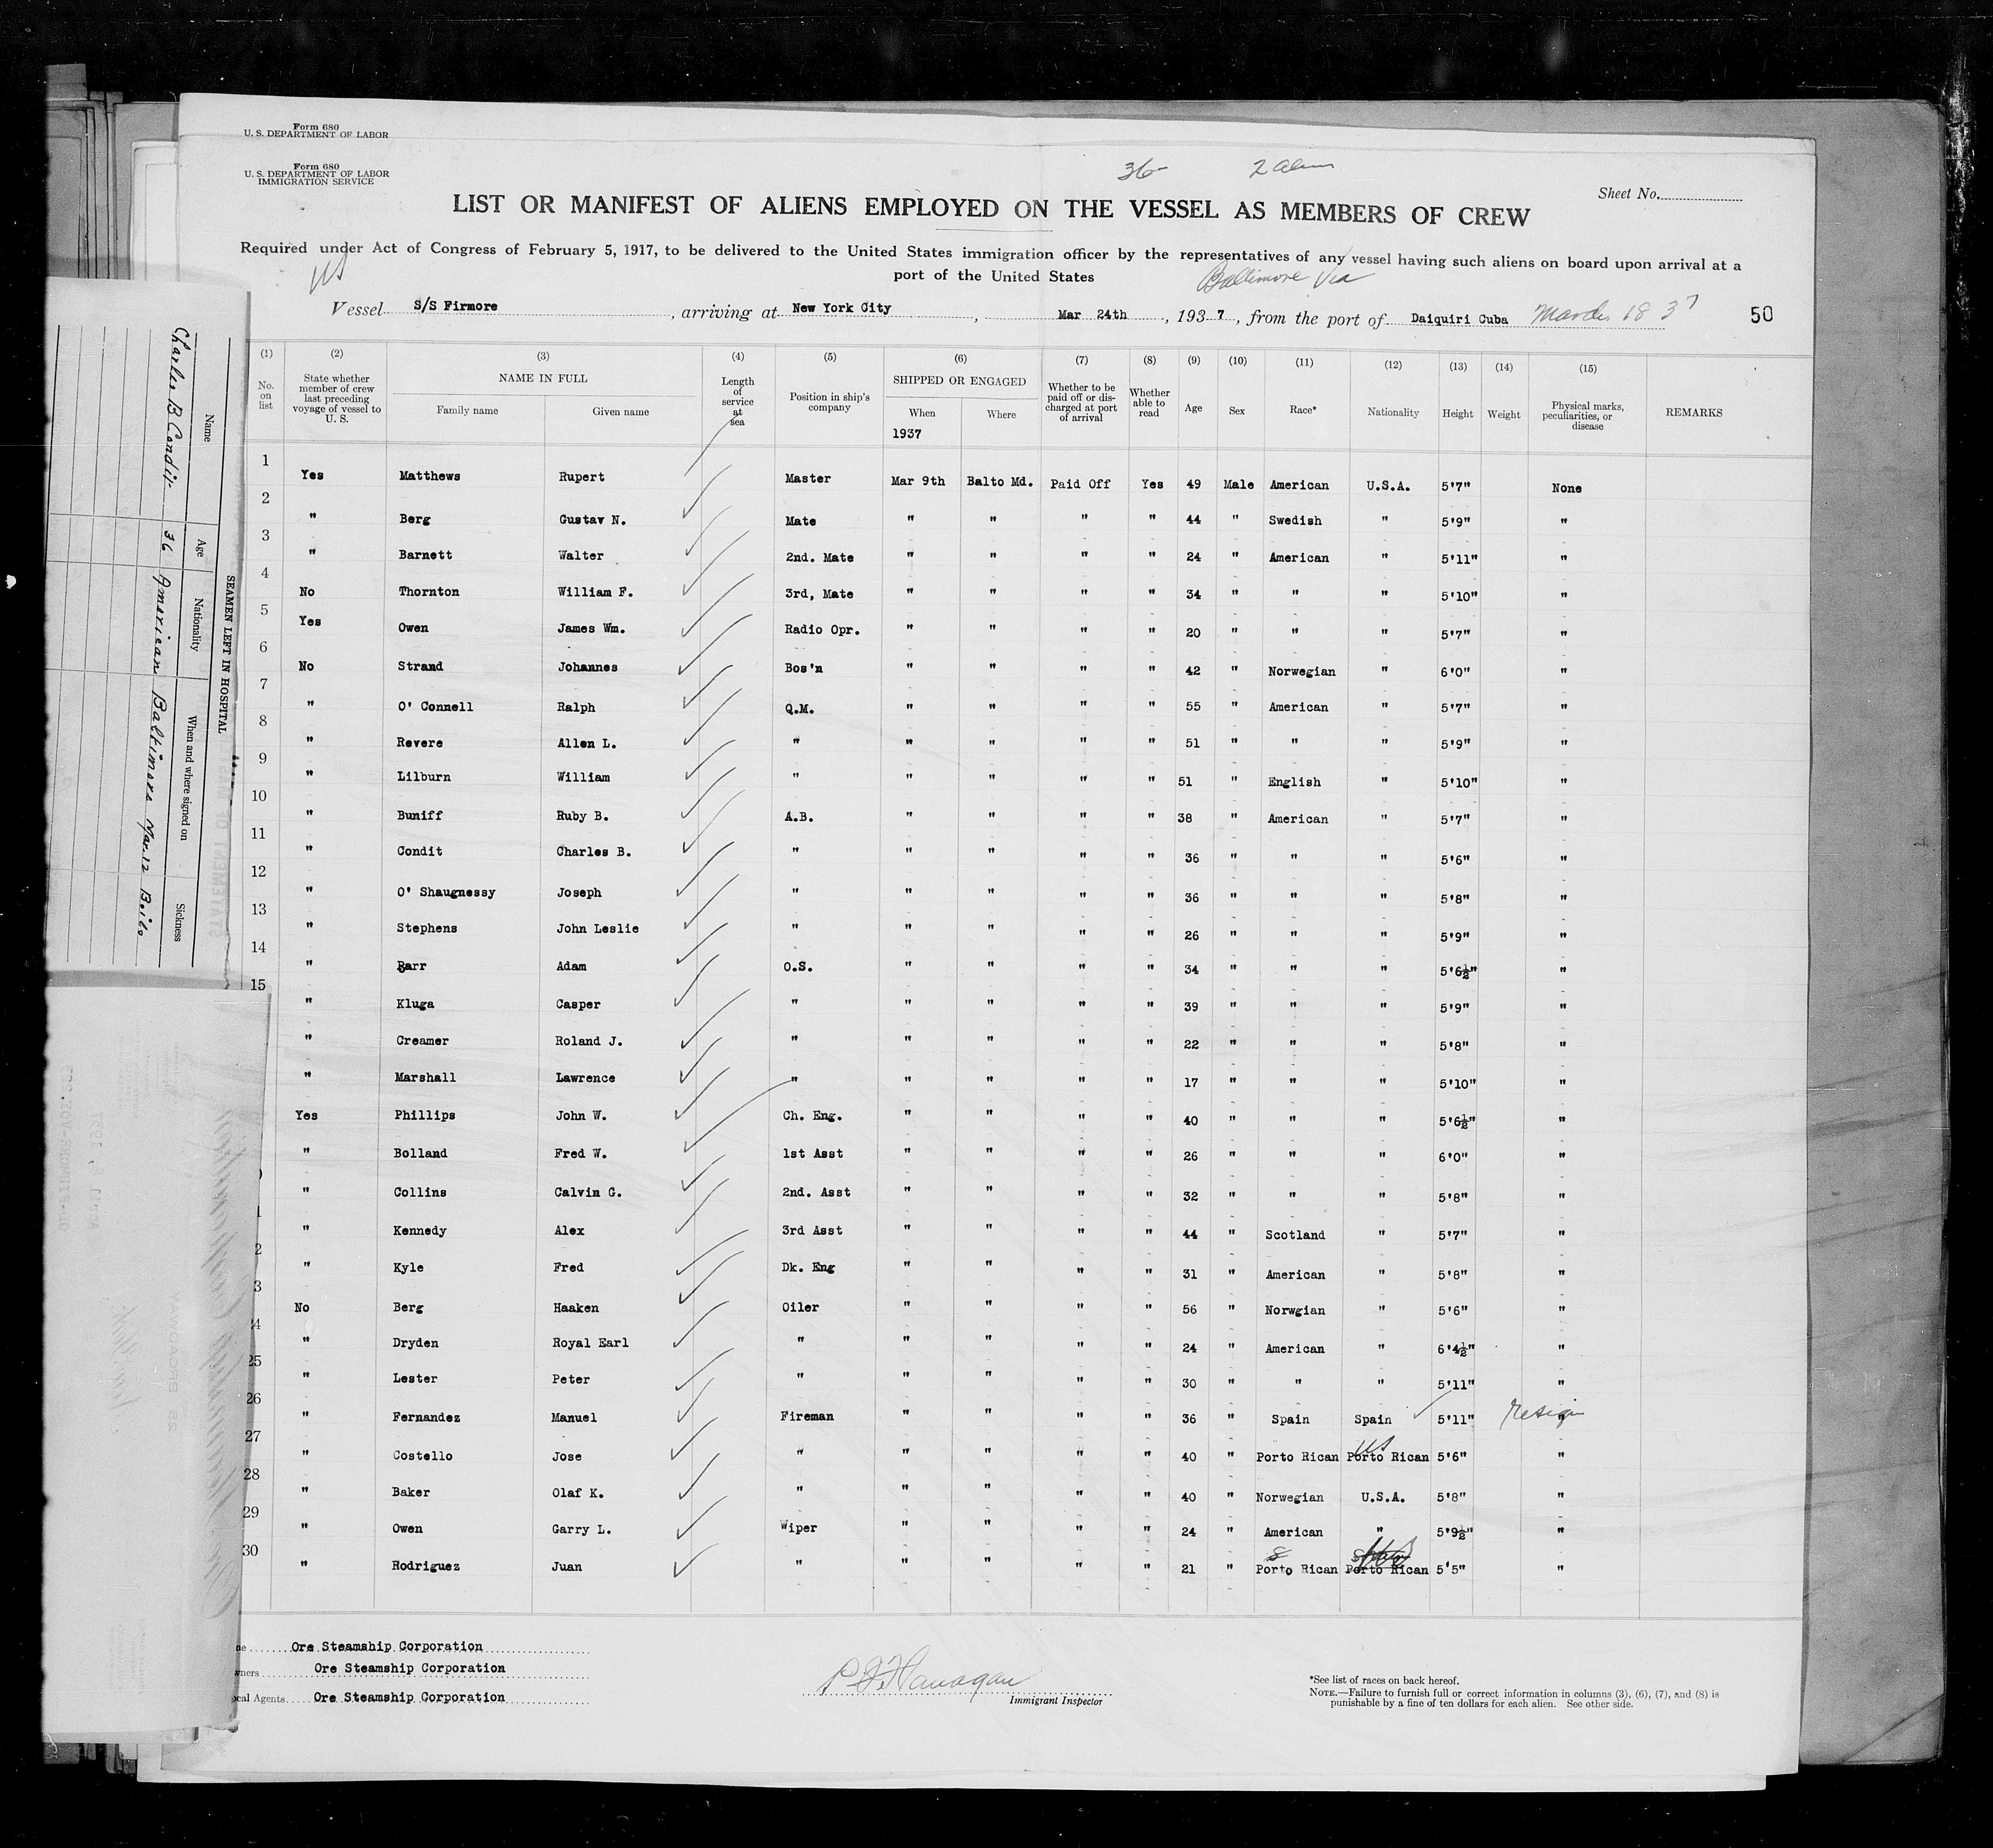 Form 680
U. S. DEPARTMENT OF LABOR
Form 680
U. S. DEPARTMENT OF LABOR
IMMIGRATION SERVICE
36 2 alien
Sheet No.
LIST OR MANIFEST OF ALIENS EMPLOYED ON THE VESSEL AS MEMBERS OF CREW
Required under Act of Congress of February 5, 1917, to be delivered to the United States immigration officer by the representatives of any vessel having such aliens on board upon arrival at a
port of the United States
US Baltimore Via
Vessel S/S Firmore, arriving at New York City, Mar 24th, 1937, from the port of Daiquiri Cuba March 18 37 50
(1) (2) (3) (4) (5) (6) (7) (8) (9) (10) (11) (12) (13) (14) (15)
No. on list State whether member of crew last preceding voyage of vessel to U. S. NAME IN FULL Family name Given name Length of service at sea Position in ship's company SHIPPED OR ENGAGED When 1937 Where Whether to be paid off or discharged at port of arrival Whether able to read Age Sex Race* Nationality Height Weight Physical marks, peculiarities, or disease REMARKS
1 Yes Matthews Rupert Master Mar 9th Balto Md. Paid Off Yes 49 Male American U.S.A. 5'7" None
2 " Berg Gustav N. Mate " " " " 44 " Swedish " 5'9" "
3 " Barnett Walter 2nd. Mate " " " " 24 " American " 5'11" "
4 No Thornton William F. 3rd, Mate " " " " 34 " " " 5'10" "
5 Yes Owen James Wm. Radio Opr. " " " " 20 " " " 5'7" "
6 No Strand Johannes Bos'n " " " " 42 " Norwegian " 6'0" "
7 " O' Connell Ralph Q.M. " " " " 55 " American " 5'7" "
8 " Revere Allen L. " " " " " 51 " " " 5'9" "
9 " Lilburn William " " " " " 51 " English " 5'10" "
10 " Buniff Ruby B. A.B. " " " " 38 " American " 5'7" "
11 " Condit Charles B. " " " " " 36 " " " 5'6" "
12 " O' Shaugnessy Joseph " " " " " 36 " " " 5'8" "
13 " Stephens John Leslie " " " " " 26 " " " 5'9" "
14 " Barr Adam O.S. " " " " 34 " " " 5'6½" "
15 " Kluga Casper " " " " " 39 " " " 5'9" "
" Creamer Roland J. " " " " " 22 " " " 5'8" "
" Marshall Lawrence " " " " " 17 " " " 5'10" "
Yes Phillips John W. Ch. Eng. " " " " 40 " " " 5'6½" "
" Bolland Fred W. 1st Asst " " " " 26 " " " 6'0" "
0 " Collins Calvin G. 2nd. Asst " " " " 32 " " " 5'8" "
1 " Kennedy Alex 3rd Asst " " " " 44 " Scotland " 5'7" "
2 " Kyle Fred Dk. Eng " " " " 31 " American " 5'8" "
3 No Berg Haaken Oiler " " " " 56 " Norwgian " 5'6" "
24 " Dryden Royal Earl " " " " " 24 " American " 6'4½" "
25 " Lester Peter " " " " " 30 " " " 5'11" "
26 " Fernandez Manuel Fireman " " " " 36 " Spain Spain 5'11" "
27 " Costello Jose " " " " " 40 " Porto Rican US Porto Rican 5'6" "
28 " Baker Olaf K. " " " " " 40 " Norwegian U.S.A. 5'8" "
29 " Owen Garry L. Wiper " " " " 24 " American " 5'9½" "
30 " Rodriguez Juan " " " " " 21 " Porto Rican Porto Rican 5'5" "
Ore Steamship Corporation
Ore Steamship Corporation
Local Agents Ore Steamship Corporation
P J Flanagan
Immigrant Inspector
*See list of races on back hereof.
NOTE.—Failure to furnish full or correct information in columns (3), (6), (7), and (8) is
punishable by a fine of ten dollars for each alien. See other side.
SEAMEN LEFT IN HOSPITAL
Name Age Nationality When and where signed on Sickness
Charles B Condit 36 American Baltimore Mar. 12 Boils